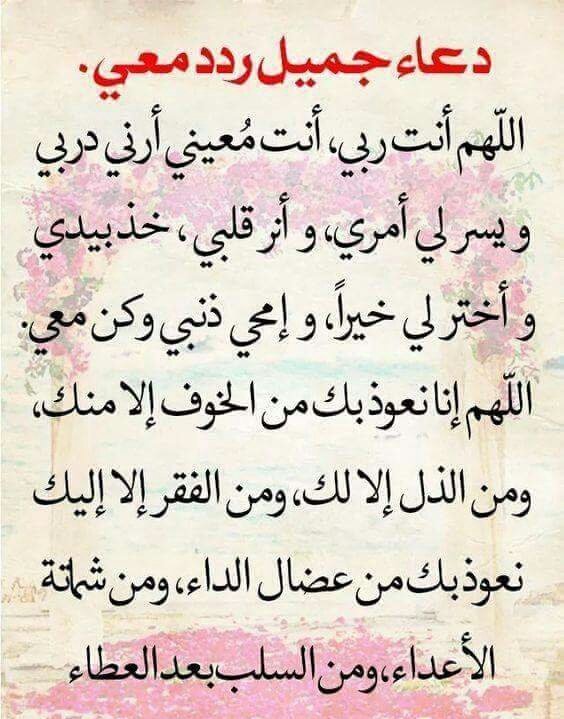 دعاء جميل ردد معي.
اللّهم أنت ربي، أنت مُعيني أرني دربي
و يسر لي أمري، و أنر قلبي، خذ بيدي
و أختر لي خيراً، و إمحي ذنبي وكن معي.
اللّهم إنا نعوذ بك من الخوف إلا منك،
ومن الذل إلا لك، ومن الفقر إلا إليك
نعوذ بك من عضال الداء، ومن شماتة
الأعداء، ومن السلب بعد العطاء